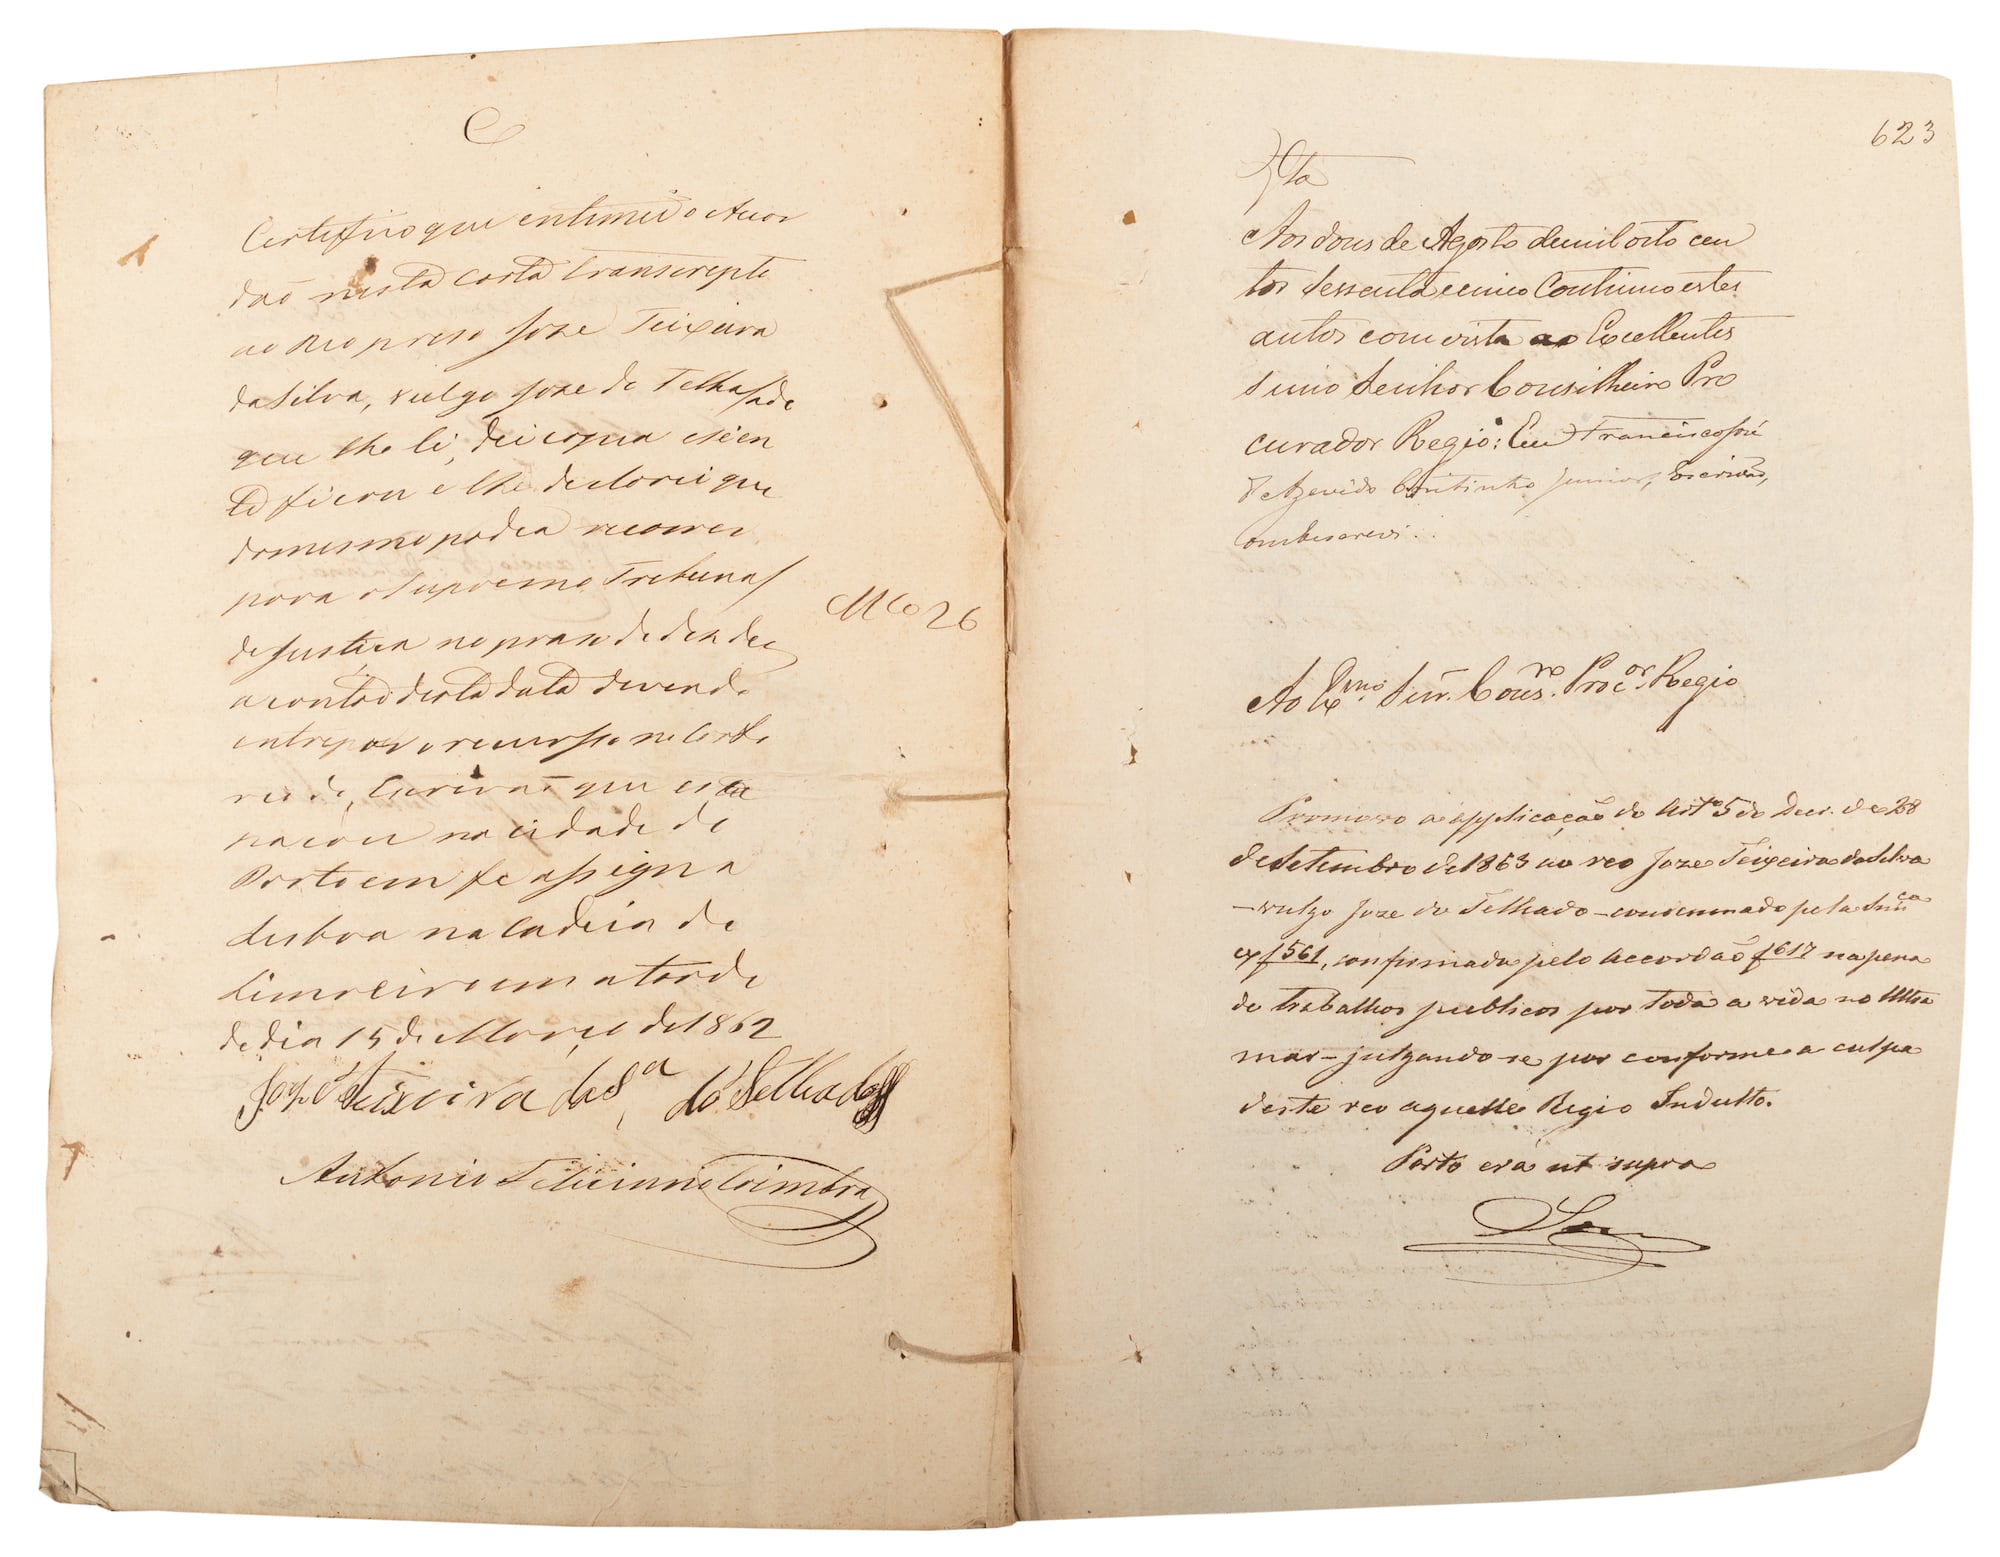 C
Certifico que entimei o Acor
daõ nesta carta transcrepto
ao Reo preso Joze Teixeira
da Silva, vulgo Joze do Telhado, de
que lhe li, dei copia e sien
te ficou e lhe declarei que
do mesmo podia recorrer
para o Supremo Tribunal
de Justiça no praso de dez dias
a contar desta data devendo
entrepor o recurso no
que este
na cidade do
Porto em fe assigna
Lisboa na Cadeia do
Limoeiro em a tarde
do dia 15 de Março de 1862
Joze Teixeira da Sª do Telhado
Antonio Feliciano Coimbra
623
Vta
Aos dous de Agosto de mil oito cen
tos sessenta e cinco Continuo estes
autos com vista ao Excellentis
simo Senhor Conselheiro Pro
curador Regio: Eu Francisco José
d'Azevedo Coutinho Junior, Escrivaõ,
o subscrevi.
Ao Exmo. Snr. Consro. Procor. Regio
Promovo a applicação do Artº 5 do Decr. de 28
de Setembro de 1863 ao reo Joze Teixeira da Silva
- vulgo Joze do Telhado - condemnado pela Snnca
ex f 561, confirmada pelo Accordaõ f 617 na pena
de trabalhos publicos por toda a vida no Ultra
mar - julgando-se por conforme a culpa
deste reo aquelle Regio Indulto.
Porto era ut supra